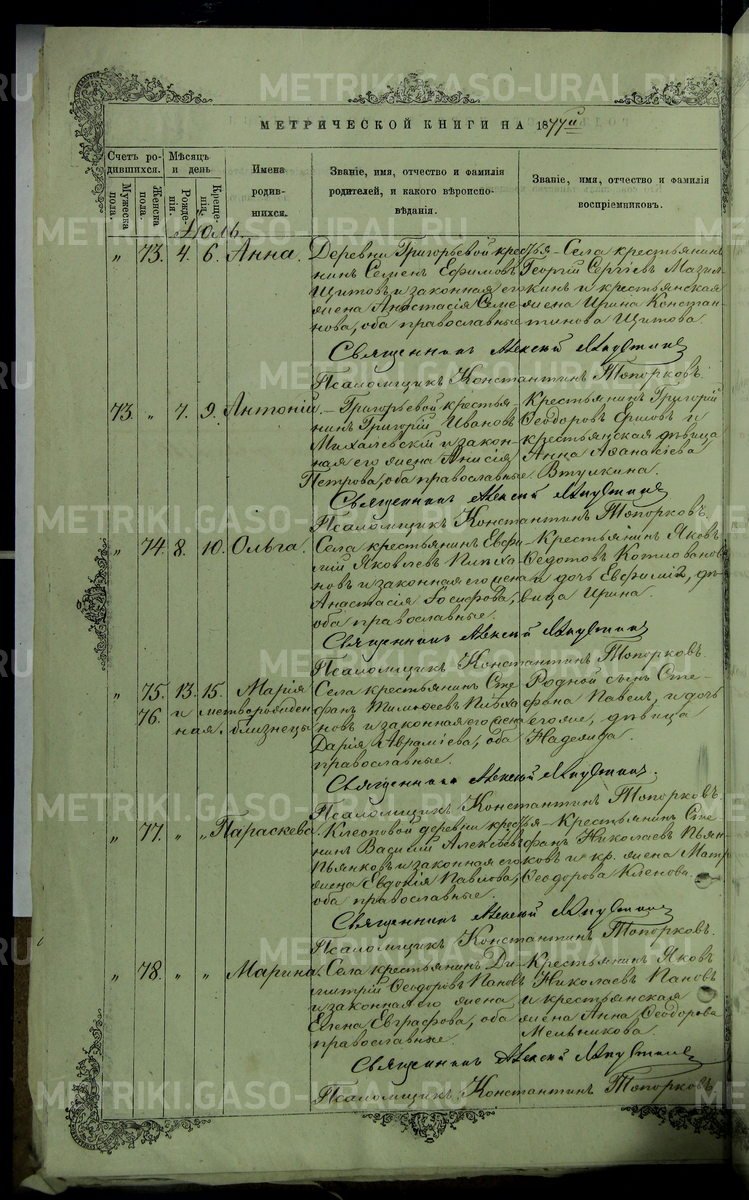 МЕТРИЧЕСКОЙ КНИГИ НА 1877й
Счетъ родившихся.
Мѣсяцъ и день
Имена родившихся.
Званіе, имя, отчество и фамилія родителей, и какого вѣроисповѣданія.
Званіе, имя, отчество и фамилія воспріемниковъ.
Мужеска пола.
Женска пола.
Рожденія.
Крещенія.
Іюль.
„ 73. 4. 6. Анна.
Деревни Григорьевой крестья-
нинъ Семенъ Ефимовъ
Щитовъ и законная его
жена Анастасія Семе-
нова, оба православные
Села крестьянинъ
Георгій Сергіевъ
и крестьянская
жена Ирина Констан-
тинова Щитова.
Священникъ Алексій
Псаломщикъ Константинъ Топорковъ.
73. „ 7. 9. Антоній.
Григорьевой крестья-
нинъ Григорій Ивановъ
Михалевскій и закон-
ная его жена Анисія
Петрова, оба православные
Крестьянинъ Григорій
Ѳеодоровъ Ершовъ и
крестьянская дѣвица
Анна Аѳанасіева
Втулкина.
Священникъ Алексій
Псаломщикъ Константинъ Топорковъ.
„ 74. 8. 10. Ольга.
Села крестьянинъ Евфи-
мій Яковлевъ
и законная его жена
Анастасія Іосифова,
оба православные.
Крестьянинъ Яковъ
Ѳедотовъ Котловановъ
и дочь Евфимія, дѣ-
вица Ирина.
Священникъ Алексій
Псаломщикъ Константинъ Топорковъ.
„ 75. 13. 15. Марія
76. и мертворожден-
ная, близнецы
Села крестьянинъ Сте-
фанъ
и законная его жена
Дарія Авраміева, оба
православные.
Родной сынъ Сте-
фана Павелъ, и дочь
его же, дѣвица
Надежда.
Священникъ Алексій
Псаломщикъ Константинъ Топорковъ.
„ 77. „ „ Параскева.
Клеоповой деревни крестья-
нинъ Василій Алексѣевъ
Пьянковъ и законная его
жена Евдокія Павлова,
оба православные.
Крестьянинъ Сте-
фанъ Николаевъ Пьян-
ковъ и кр. жена
Ѳеодорова Кленова.
Священникъ Алексій
Псаломщикъ Константинъ Топорковъ.
„ 78. „ „ Марина.
Села крестьянинъ Ди-
митрій Ѳеодоровъ Пановъ
и законная его жена
Елена Евграфова, оба
православные.
Крестьянинъ Яковъ
Николаевъ Пановъ
и крестьянская
жена Анна Ѳеодорова
Мельникова.
Священникъ Алексій
Псаломщикъ Константинъ Топорковъ.
METRIKI.GASO-URAL.RU